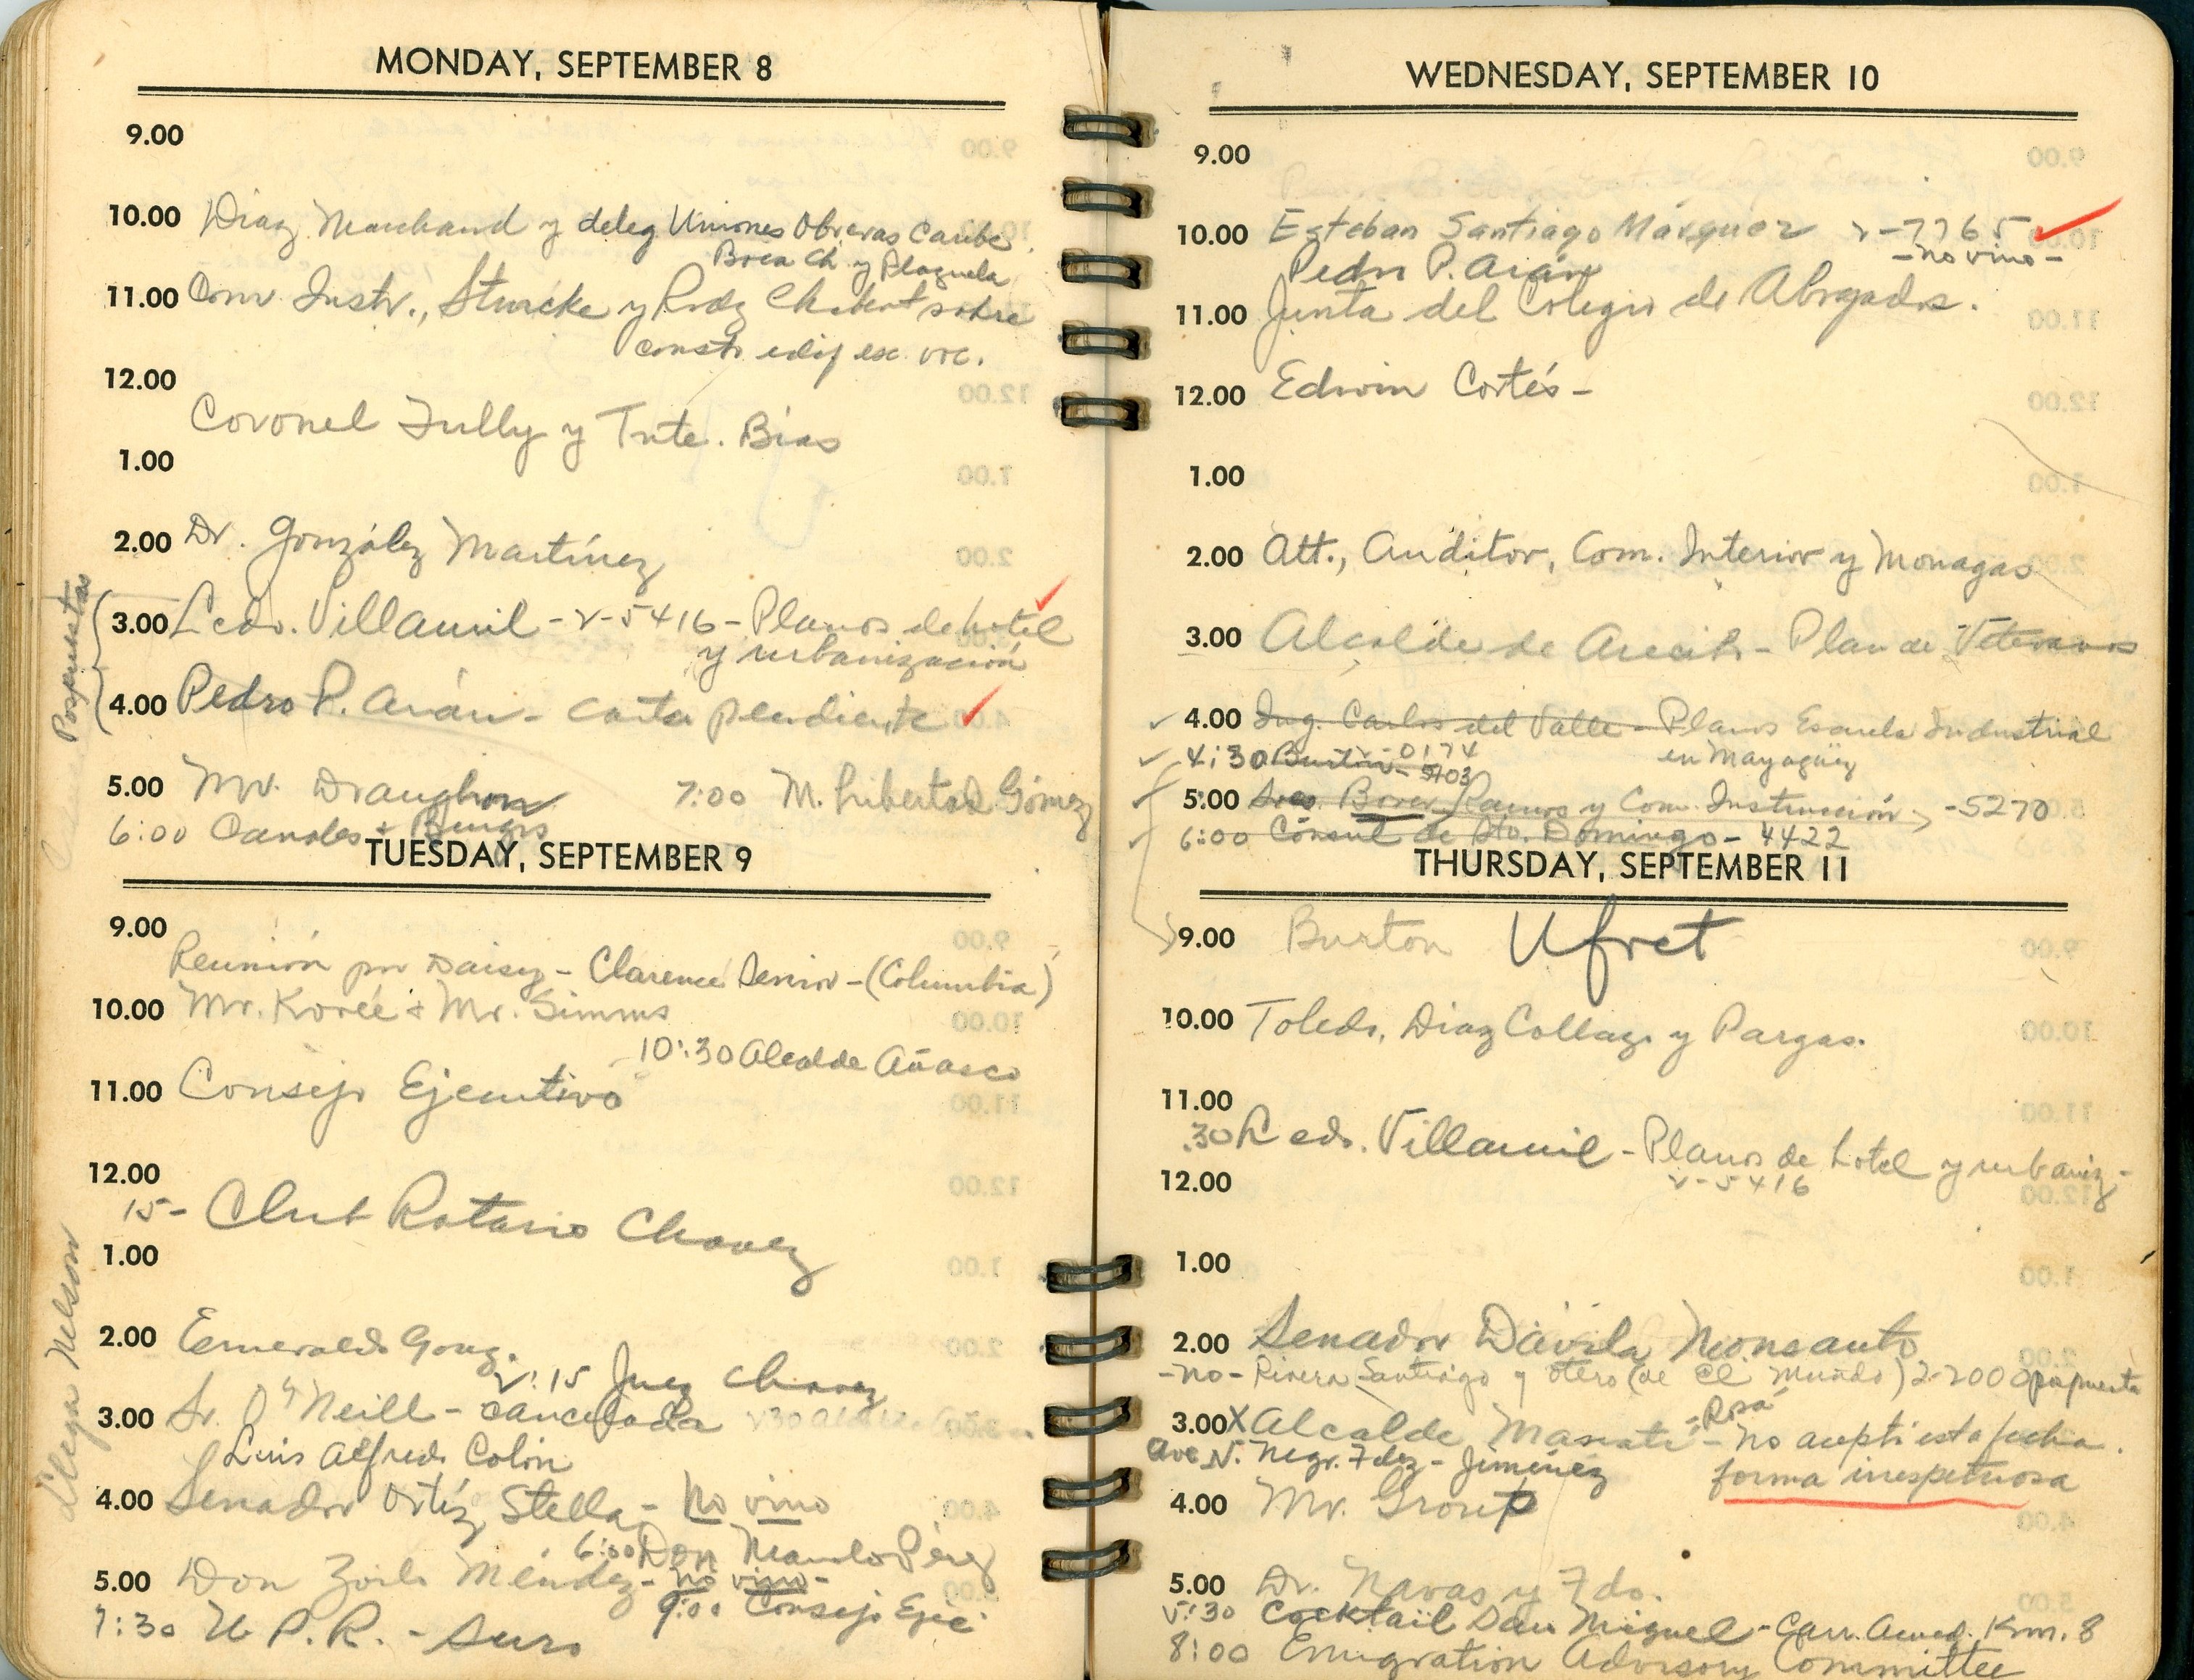 MONDAY, SEPTEMBER 8
9.00
10.00 Diaz Marchand y deleg Uniones Obreras Caribe
Boca Ch. y Plazuela
11.00 Com. Instr., Sturcke y Rodz Chabert sobre
constr. edif esc. voc.
12.00
Coronel Tully y Tnte. Bias
1.00
2.00 Dr. González Martínez
Pospuestas
3.00 Lcdo. Villamil - 2-5416 - Planos de hotel
y urbanización
4.00 Pedro P. Arán - carta pendiente
5.00 Mr. Draughon 7:00 M. Libertad Gómez
6:00 Canales +
TUESDAY, SEPTEMBER 9
9.00
Reunión por Daisy - Clarence Senior - (Columbia)
10.00 Mr. Koreé + Mr. Simms
10:30 Alcalde Añasco
11.00 Consejo Ejecutivo
12.00
15 - Club Rotario Chavez
1.00
Nelson
2.00 Esmeraldo Gonz.
2:15 Juez Chavez
3.00 Sr. O'Neill - cancelada
Luis Alfredo Colin
4.00 Senador Ortíz Stella - No vino
6:00 Don Manolo Pérez
5.00 Don Zoilo Méndez - no vino -
9:00 Consejo Ejec.
7:30 U. P. R. - Suro
WEDNESDAY, SEPTEMBER 10
9.00
10.00 Esteban Santiago Márquez 2-7765
- no vino -
Pedro P. Arán
11.00 Junta del Colegio de Abogados.
12.00 Edwin Cortés -
1.00
2.00 Att., Auditor, Com. Interior y Monagas
3.00 Alcalde de Arecibo - Plan de Veteranos
4.00 Ing. Carlos del Valle - Planos Escuela Industrial
en Mayagüez
2-0174
4:30 Burton - 5103
5.00 Sres. Bover, Ramos y Com. Instrucción - 5270
6:00 Cónsul de Sto. Domingo - 4422
THURSDAY, SEPTEMBER 11
9.00 Burton Ufret
10.00 Toledo, Diaz Collazo y Pargas.
11.00
.30 Lcdo. Villamil - Planos de hotel y urbaniz -
2-5416
12.00
1.00
2.00 Senador Dávila Monsanto
- no - Rivera Santiago y Otero (de El Mundo) 2-2000
3.00 X Alcalde Manatí - Rosá - no aceptó esta fecha.
forma irrespetuosa
Ave. N. Negr. Fdez - Jiménez
4.00 Mr. Group
5.00 Dr. Navas y Fdo.
5:30 Cocktail Dan Miguel - Carr. Km. 8
8:00 Emigration Advisory Committee